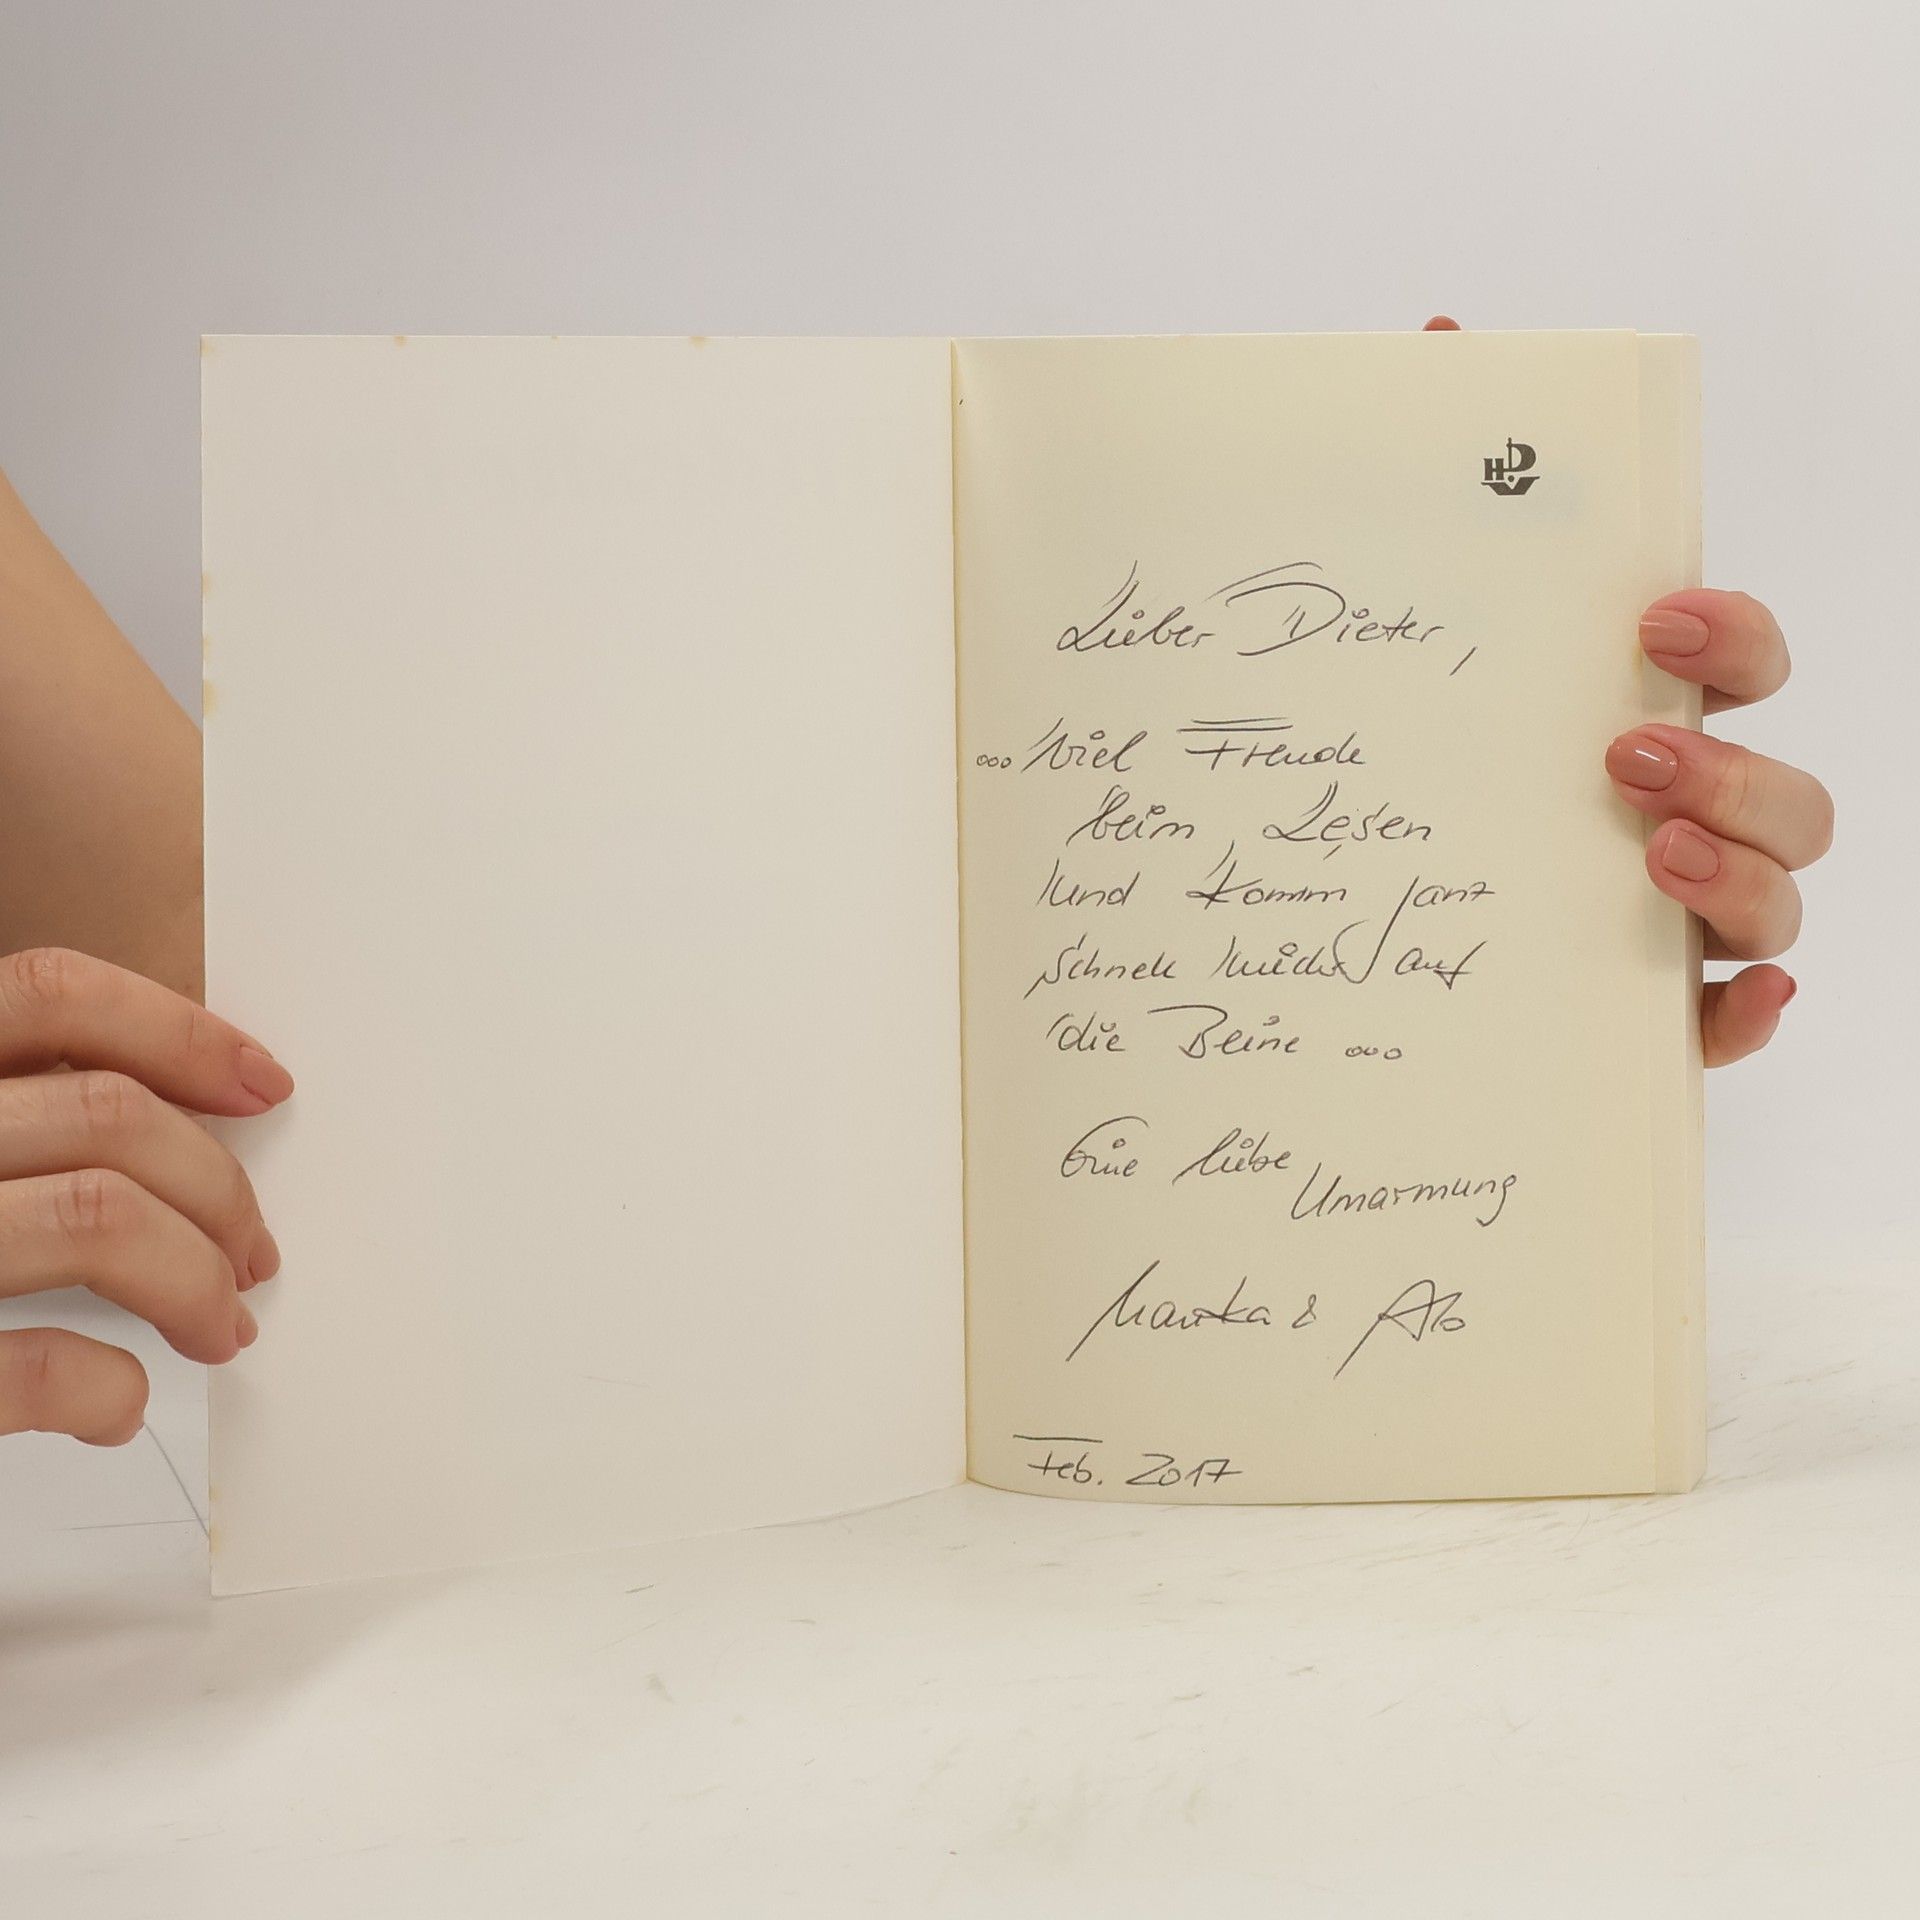 HDV
Lieber Dieter,
... viel Freude
beim Lesen
und komm ganz
schnell wieder auf
die Beine ...
Eine liebe
Umarmung
&
Feb. 2017